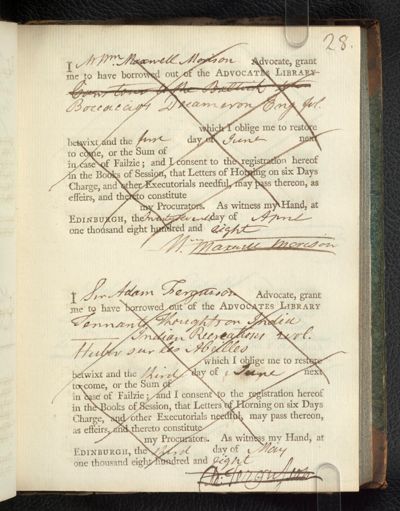 28.
I Mr Wm Maxwell Morison Advocate, grant
me to have borrowed out of the ADVOCATES LIBRARY
Boccacio's Decameron Eng fol.
which I oblige me to restore
betwixt and the first day of June next
to come, or the Sum of
in case of Failzie; and I consent to the registration hereof
in the Books of Session, that Letters of Horning on six Days
Charge, and other Executorials needful, may pass thereon, as
effeirs, and thereto constitute
my Procurators. As witness my Hand, at
EDINBURGH, the day of April
one thousand eight hundred and eight
Wm Maxwell Morison
I Sir Adam Ferguson Advocate, grant
me to have borrowed out of the ADVOCATES LIBRARY
Tennants Thoughts on India
Indian Recreations 2 vol.
Huber sur les Abeilles
which I oblige me to restore
betwixt and the third day of June next
to come, or the Sum of
in case of Failzie; and I consent to the registration hereof
in the Books of Session, that Letters of Horning on six Days
Charge, and other Executorials needful, may pass thereon,
as effeirs, and thereto constitute
my Procurators. As witness my Hand, at
EDINBURGH, the third day of May
one thousand eight hundred and eight